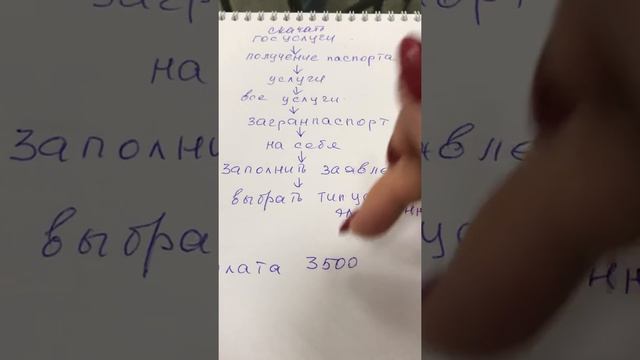 скачать
госуслуги
получение паспорта
услуги
все услуги
загранпаспорт
на себя
заполнить заявле
выбрать тип ус
лата 3500